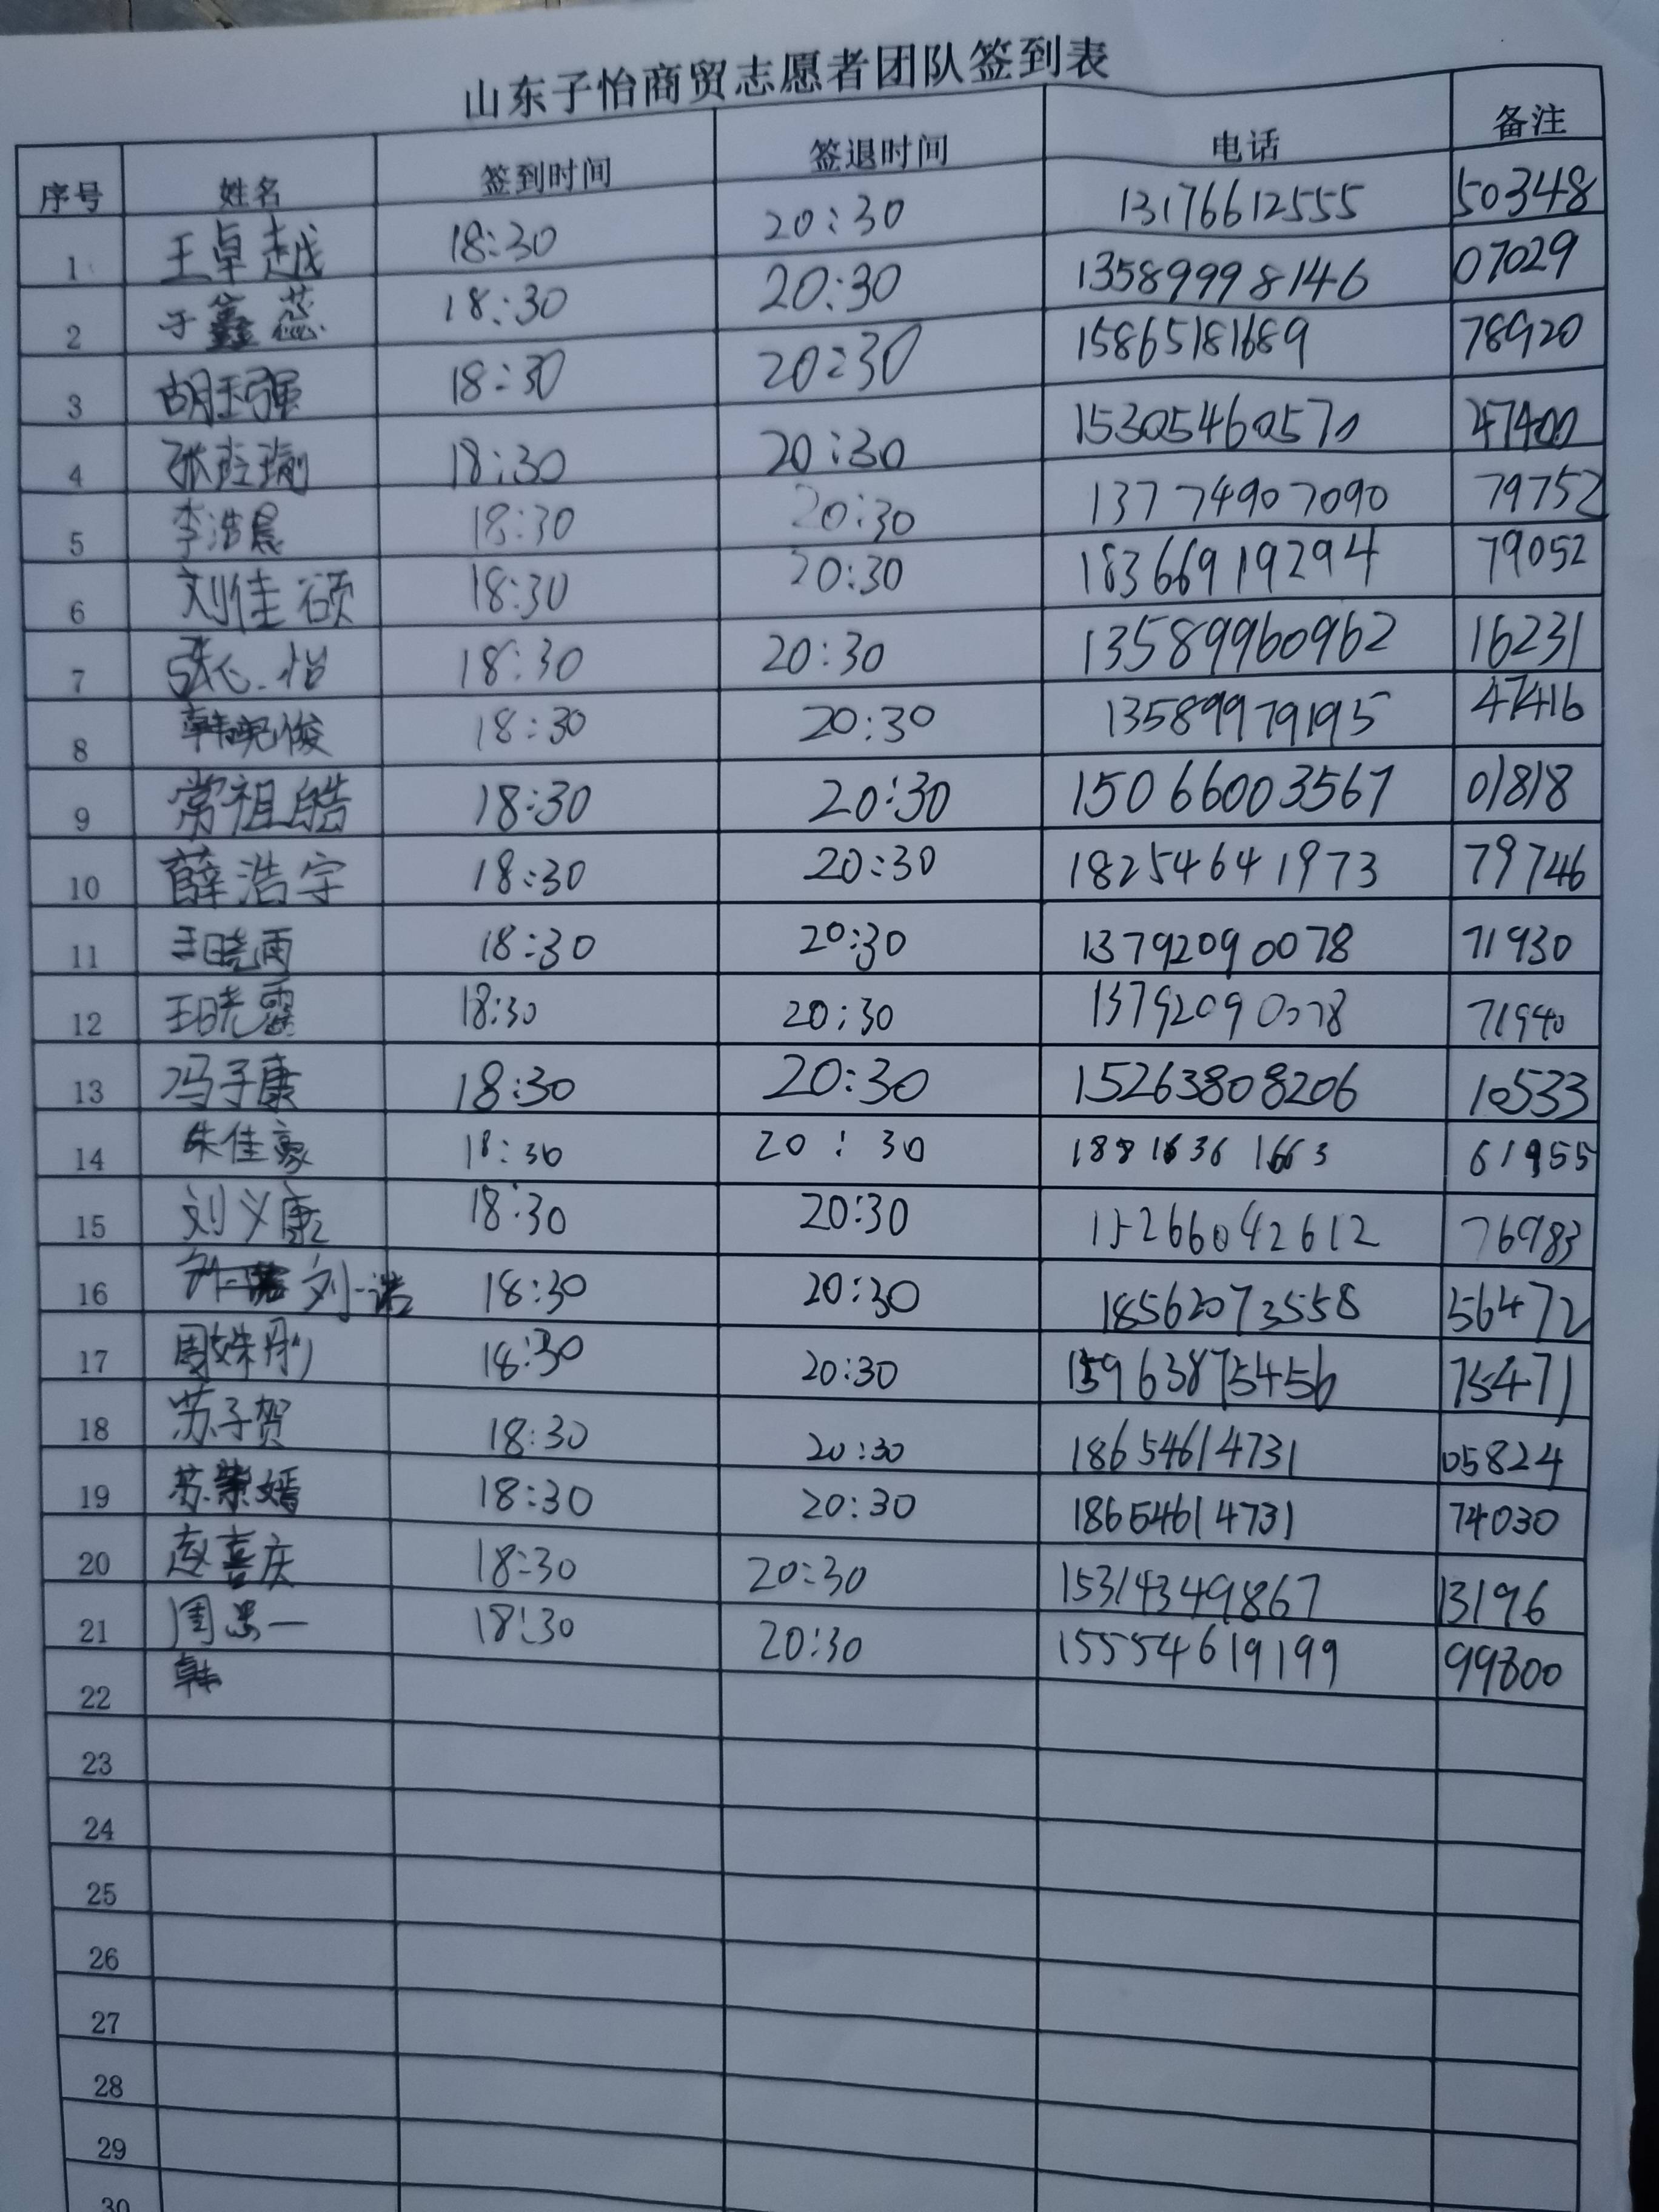 山东子怡商贸志愿者团队签到表
序号 姓名 签到时间 签退时间 电话 备注
1 王卓越 18:30 20:30 13176612555 50348
2 于鑫蕊 18:30 20:30 13589998146 07029
3 胡玉强 18:30 20:30 15865181689 78920
4 张珏瑜 18:30 20:30 15305460570 47400
5 李浩晨 18:30 20:30 13774907090 79752
6 刘佳硕 18:30 20:30 18366919294 79052
7 张心怡 18:30 20:30 13589960962 16231
8 韩昵俊 18:30 20:30 13589979195 47416
9 常祖皓 18:30 20:30 15066003567 01818
10 薛浩宇 18:30 20:30 18254641973 79746
11 王晓雨 18:30 20:30 13792090078 71930
12 王晓霞 18:30 20:30 13792090078 71940
13 冯子康 18:30 20:30 15263808206 10533
14 朱佳豪 18:30 20:30 61955
15 刘义康 18:30 20:30 15266042612 76983
16 刘一诺 18:30 20:30 18562073558 56472
17 周姝彤 18:30 20:30 15963875456 75471
18 苏子贺 18:30 20:30 18654614731 05824
19 苏崇嫣 18:30 20:30 18654614731 74030
20 赵喜庆 18:30 20:30 153143349867 13196
21 周一 18:30 20:30 15554619199 99800
22 韩
23
24
25
26
27
28
29
30